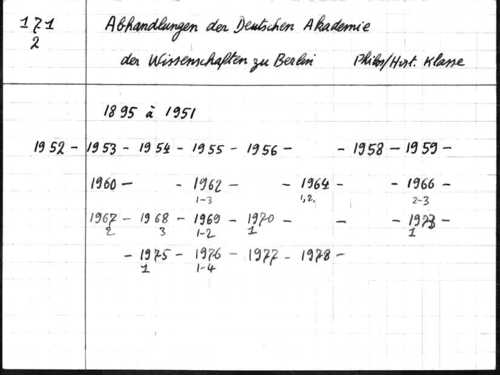 171 Abhandlungen der Deutschen Akademie
2
der Wissenschaften zu Berlin Philos/Hist. Klasse
1895 à 1951
1952 - 1953 - 1954 - 1955 - 1956 - - 1958 - 1959 -
1960 - - 1962 - - 1964 - - 1966 -
1-3 1,2. 2-3
1967 - 1968 - 1969 - 1970 - - - 1973 -
2 3 1-2 1 1
- 1975 - 1976 - 1977 - 1978 -
1 1-4